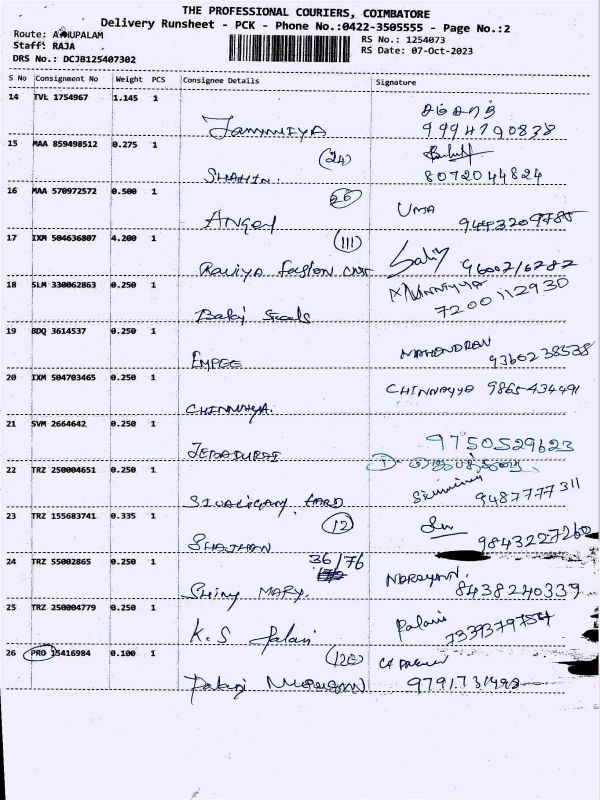 THE PROFESSIONAL COURIERS, COIMBATORE
Delivery Runsheet - PCK - Phone No.:0422-3505555 - Page No.:2
Route: A UPALAM
RS No.: 1254073
Staff: RAJA
RS Date: 07-Oct-2023
DRS No.: DCJB125407302
S No Consignment No Weight PCS Consignee Details Signature
14 TVL 1754967 1.145 1
9994790838
15 MAA 859498512 0.275 1
(24)
SHAHIN. 8072044824
16 MAA 570972572 0.500 1
26
ANGEL UMA 9443209785
17 IXM 504636807 4.200 1
(111)
9600216282
18 SLM 330062863 0.250 1
Balaji 7200112930
19 BDQ 3614537 0.250 1
EMPEE MAHENDRAN 9360238538
20 IXM 504703465 0.250 1
CHINNAYYA 9865434491
CHINNAYYA.
21 SVM 2664642 0.250 1
JEYADURAI 9750529623
22 TRZ 250004651 0.250 1
9487777311
23 TRZ 155683741 0.335 1
(12)
SHAJHAN 9843227260
24 TRZ 55002865 0.250 1
36/76
Shiny MARY. NARAYANN. 8438240339
25 TRZ 250004779 0.250 1
K.S Palani Palani
26 PRO 15416984 0.100 1
(120)
Palani Murugan 9791731498